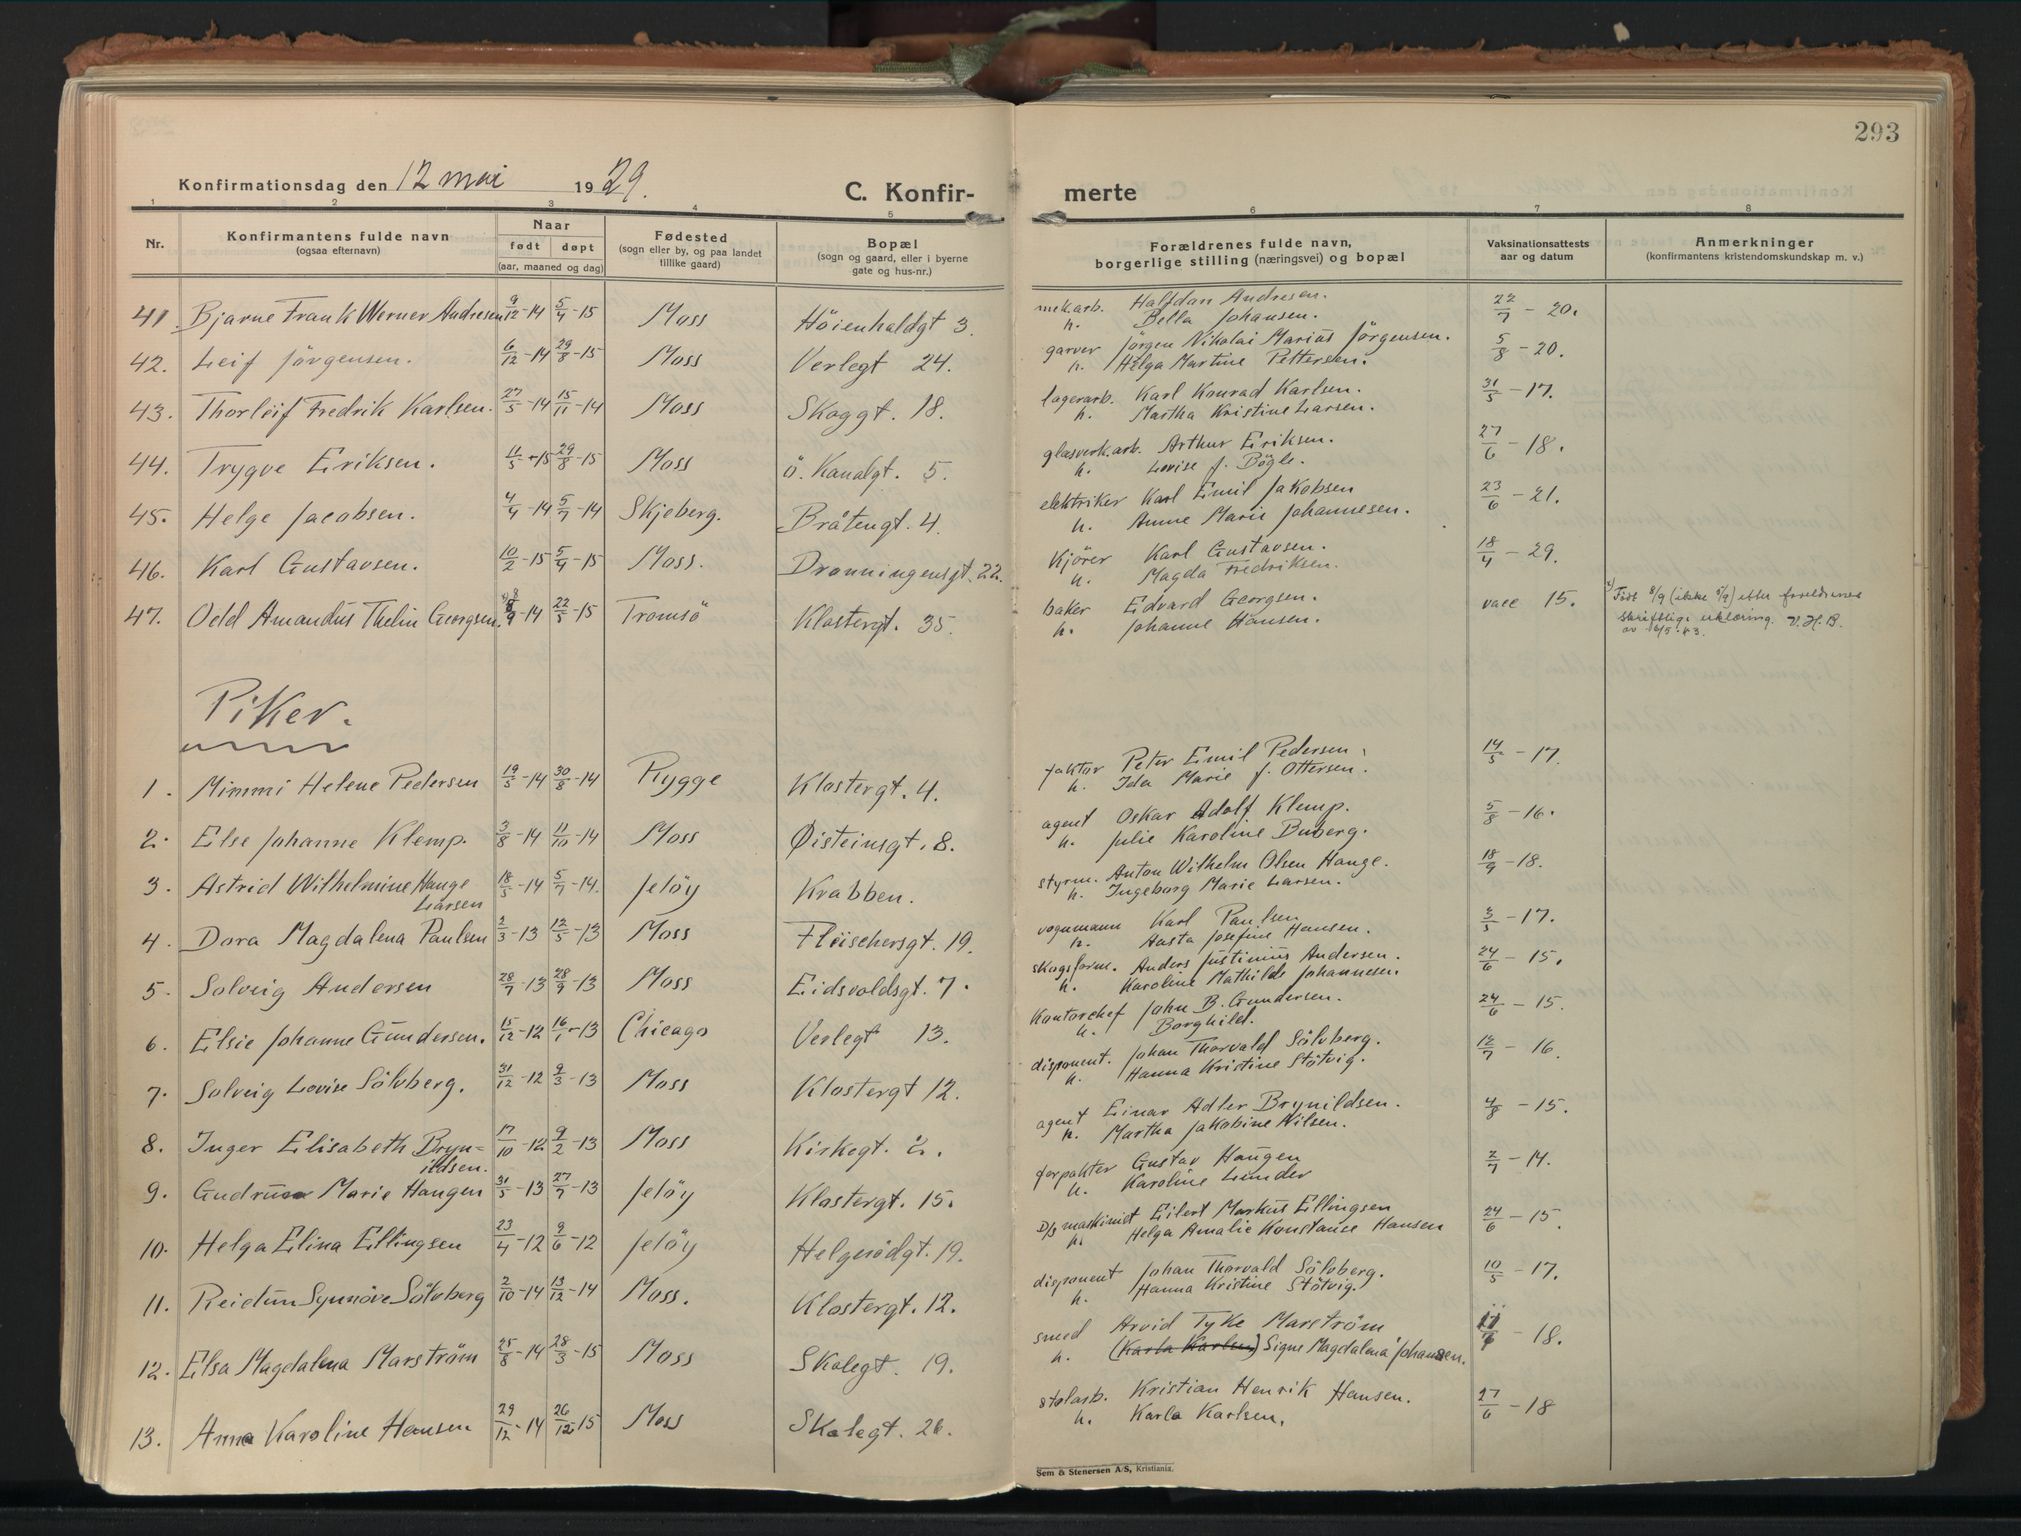 293
Konfirmationsdag den 12 mai 1929.
C. Konfir- merte
1 2 3 4 5 6 7 8
Nr. Konfirmantens fulde navn (ogsaa efternavn) Naar født døpt (aar, maaned og dag) Fødested (sogn eller by, og paa landet tillike gaard) Bopæl (sogn og gaard, eller i byerne gate og hus-nr.) Forældrenes fulde navn, borgerlige stilling (næringsvei) og bopæl Vaksinationsattests aar og datum Anmerkninger (konfirmantens kristendomskundskap m. v.)
41. Bjarne Frank Werner Andresen 9/12-14 5/4-15 Moss Høienhaldgt 3. mek.arb. Halfdan Andresen. 22/7 - 20.
h. Bella Johansen.
42. Leif Jörgensen. 6/12-14 29/8-15 Moss Verlegt 24. garver Jörgen Nikolai Marius Jörgensen. 5/8 - 20.
h. Helga Martine Pettersen.
43. Thorleif Fredrik Karlsen. 27/5-14 15/11-14 Moss Skoggt. 18. lagerarb. Karl Konrad Karlsen. 31/5 - 17.
h. Martha Kristine Larsen.
44. Trygve Eriksen. 11/5-15 29/8-15 Moss ö. Kanalgt. 5. glasverk.arb. Arthur Eriksen. 27/6 - 18.
h. Lovise f. Bögle.
45. Helge Jacobsen. 4/4-14 5/7-14 Skjeberg. Bråtengt. 4. elektriker Karl Emil Jakobsen 23/6 - 21.
h. Anne Marie Johannesen.
46. Karl Gustavsen. 10/2-15 5/4-15 Moss. Dronningensgt. 22. Kjörer Karl Gustavsen. 18/4 - 29.
h. Magda Fredriksen.
47. Odd Amandus Thelin Georgsen. 8/9-14 22/5-15 Tromsö Klostergt. 35. baker Edvard Georgsen. vacc 15. Født 8/9 (ikke 9/9) efter foreldrenes
h. Johanne Hansen. skriftlige erklæring. V.H.B.
Piker.
1. Mimmi Helene Pedersen 19/5-14 30/8-14 Rygge Klostergt. 4. faktor Peter Emil Pedersen. 14/5 - 17.
h. Ida Marie f. Ottersen.
2. Else Johanne Klemp. 3/8-14 11/10-14 Moss Øisteinsgt. 8. agent Oskar Adolf Klemp. 5/8 - 16.
h. Julie Karoline Buberg.
3. Astrid Wilhelmine Hauge 18/5-14 5/7-14. Jelöy Krabben. styrm. Anton Wilhelm Olsen Hauge. 18/9 - 18.
Larsen h. Ingeborg Marie Larsen.
4. Dora Magdalena Paulsen 2/3-13 12/5-13 Moss Fleischersgt. 19. vognmann Karl Paulsen 3/5 - 17.
h. Aasta Josefine Hansen.
5. Solveig Andersen 28/7-13 28/9-13 Moss Eidsvoldsgt. 7. skogsform. Anders Justinius Andersen. 24/6 - 15.
h. Karoline Mathilde Johannesen.
6. Elsie Johanne Gundersen. 15/12-12 16/1-13 Chicago Verlegt 13. Kontorchef John B. Gundersen. 24/6 - 15.
h. Borghild.
7. Solveig Lovise Sölvberg. 31/12-12 9/3-13 Moss Klostergt 12. disponent. Johan Thorvald Sölvberg. 12/7 - 16.
h. Hanna Kristine Stötvig.
8. Inger Elisabeth Bryn- 17/10-12 9/2-13 Moss Kirkegt. 2. agent Einar Adler Brynildsen. 4/8 - 15.
ildsen. h. Martha Jakobine Nilsen.
9. Gudrun Marie Haugen 31/5-13 27/7-13 Jelöy Klostergt. 15. forpakter Gustav Haugen 2/7 - 14.
h. Karoline Lunder
10. Helga Elina Ellingsen 23/4-12 9/6-12 Jelöy Helgerödgt. 19. D/s maskinist Eilert Markus Ellingsen 24/6 - 15.
h. Helga Amalie Konstanse Hansen
11. Reidun Synnöve Sölvberg 2/10-14 13/12-14 Moss. Klostergt. 12. disponent Johan Thorvald Sölvberg. 10/5 - 17.
h. Hanna Kristine Stötvig.
12. Elsa Magdalena Marström 25/8-14 28/3-15 Moss Skolegt. 19. smed Arvid Tyke Marström - 18.
h. (Karla Karlsen) Signe Magdalena Johansen.
13. Anna Karoline Hansen 29/12-14 26/12-15 Moss Skolegt. 26. stolarb. Kristian Henrik Hansen. 27/6 - 18
h. Karla Karlsen.
Sem & Stenersen A/S, Kristiania.